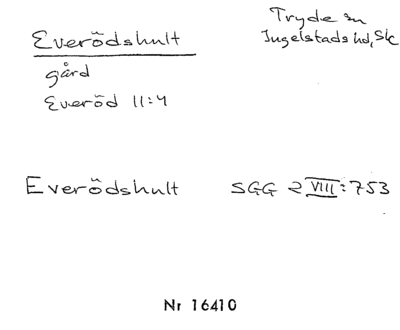 Everödshult
Tryde sn
Ingelstads hd, Sk
gård
Everöd 11:4
Everödshult SGG 2 VIII:753
Nr 16410